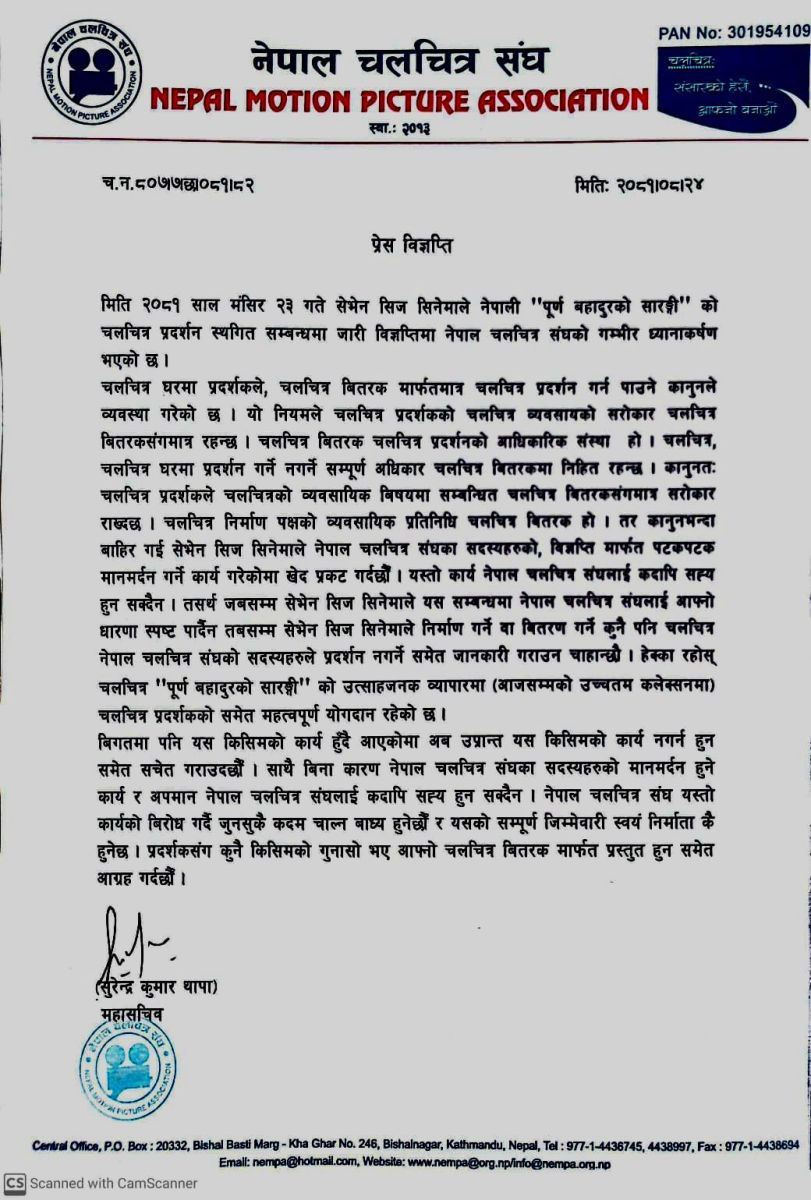 PAN No: 301954109
नेपाल चलचित्र संघ
NEPAL MOTION PICTURE ASSOCIATION
स्था.: २०१३
नेपाल चलचित्र संघ
NEPAL MOTION PICTURE ASSOCIATION
चलचित्रः
संसारको हेरौं, ...
आफ्नो बजाऔं
च.न.८०७७छ।०८१।८२
मितिः २०८१।०८।२४
प्रेस विज्ञप्ति
मिति २०८१ साल मंसिर २३ गते सेभेन सिज सिनेमाले नेपाली "पूर्ण बहादुरको सारङ्गी" को
चलचित्र प्रदर्शन स्थगित सम्बन्धमा जारी विज्ञप्तिमा नेपाल चलचित्र संघको गम्भीर ध्यानाकर्षण
भएको छ ।
चलचित्र घरमा प्रदर्शकले, चलचित्र बितरक मार्फतमात्र चलचित्र प्रदर्शन गर्न पाउने कानुनले
व्यवस्था गरेको छ । यो नियमले चलचित्र प्रदर्शकको चलचित्र व्यवसायको सरोकार चलचित्र
बितरकसंगमात्र रहन्छ । चलचित्र बितरक चलचित्र प्रदर्शनको आधिकारिक संस्था हो । चलचित्र,
चलचित्र घरमा प्रदर्शन गर्ने नगर्ने सम्पूर्ण अधिकार चलचित्र बितरकमा निहित रहन्छ । कानुनतः
चलचित्र प्रदर्शकले चलचित्रको व्यवसायिक बिषयमा सम्बन्धित चलचित्र बितरकसंगमात्र सरोकार
राख्दछ । चलचित्र निर्माण पक्षको व्यवसायिक प्रतिनिधि चलचित्र बितरक हो । तर कानुनभन्दा
बाहिर गई सेभेन सिज सिनेमाले नेपाल चलचित्र संघका सदस्यहरुको, विज्ञप्ति मार्फत पटकपटक
मानमर्दन गर्ने कार्य गरेकोमा खेद प्रकट गर्दछौं । यस्तो कार्य नेपाल चलचित्र संघलाई कदापि सह्य
हुन सक्दैन । तसर्थ जबसम्म सेभेन सिज सिनेमाले यस सम्बन्धमा नेपाल चलचित्र संघलाई आफ्नो
धारणा स्पष्ट पार्दैन तबसम्म सेभेन सिज सिनेमाले निर्माण गर्ने वा बितरण गर्ने कुनै पनि चलचित्र
नेपाल चलचित्र संघको सदस्यहरुले प्रदर्शन नगर्ने समेत जानकारी गराउन चाहान्छौ । हेक्का रहोस्
चलचित्र "पूर्ण बहादुरको सारङ्गी" को उत्साहजनक व्यापारमा (आजसम्मको उच्चतम कलेक्सनमा)
चलचित्र प्रदर्शकको समेत महत्वपूर्ण योगदान रहेको छ ।
बिगतमा पनि यस किसिमको कार्य हुँदै आएकोमा अब उप्रान्त यस किसिमको कार्य नगर्न हुन
समेत सचेत गराउदछौं । साथै बिना कारण नेपाल चलचित्र संघका सदस्यहरुको मानमर्दन हुने
कार्य र अपमान नेपाल चलचित्र संघलाई कदापि सह्य हुन सक्दैन । नेपाल चलचित्र संघ यस्तो
कार्यको बिरोध गर्दै जुनसुकै कदम चाल्न बाध्य हुनेछौं र यसको सम्पूर्ण जिम्मेवारी स्वयं निर्माता कै
हुनेछ । प्रदर्शकसंग कुनै किसिमको गुनासो भए आफ्नो चलचित्र बितरक मार्फत प्रस्तुत हुन समेत
आग्रह गर्दछौं ।
(सुरेन्द्र कुमार थापा)
महासचिव
नेपाल चलचित्र संघ
NEPAL MOTION PICTURE ASSOCIATION
Central Office, P.O. Box : 20332, Bishal Basti Marg - Kha Ghar No. 246, Bishalnagar, Kathmandu, Nepal, Tel : 977-1-4436745, 4438997, Fax : 977-1-4438694
Email: nempa@hotmail.com, Website: www.nempa@org.np/info@nempa.org.np
CS Scanned with CamScanner